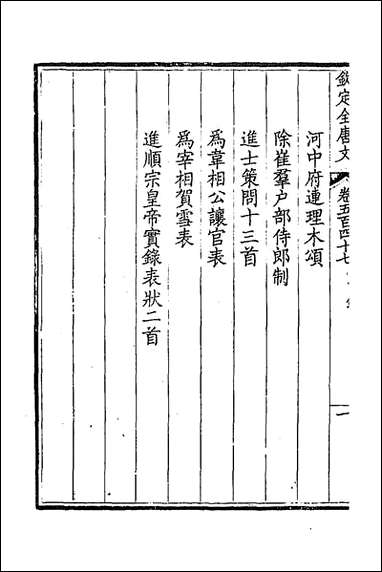 欽定全唐文
卷五百四十七
一
河中府連理木頌
除崔羣戶部侍郎制
進士策問十三首
為韋相公讓官表
為宰相賀雪表
進順宗皇帝實錄表狀二首